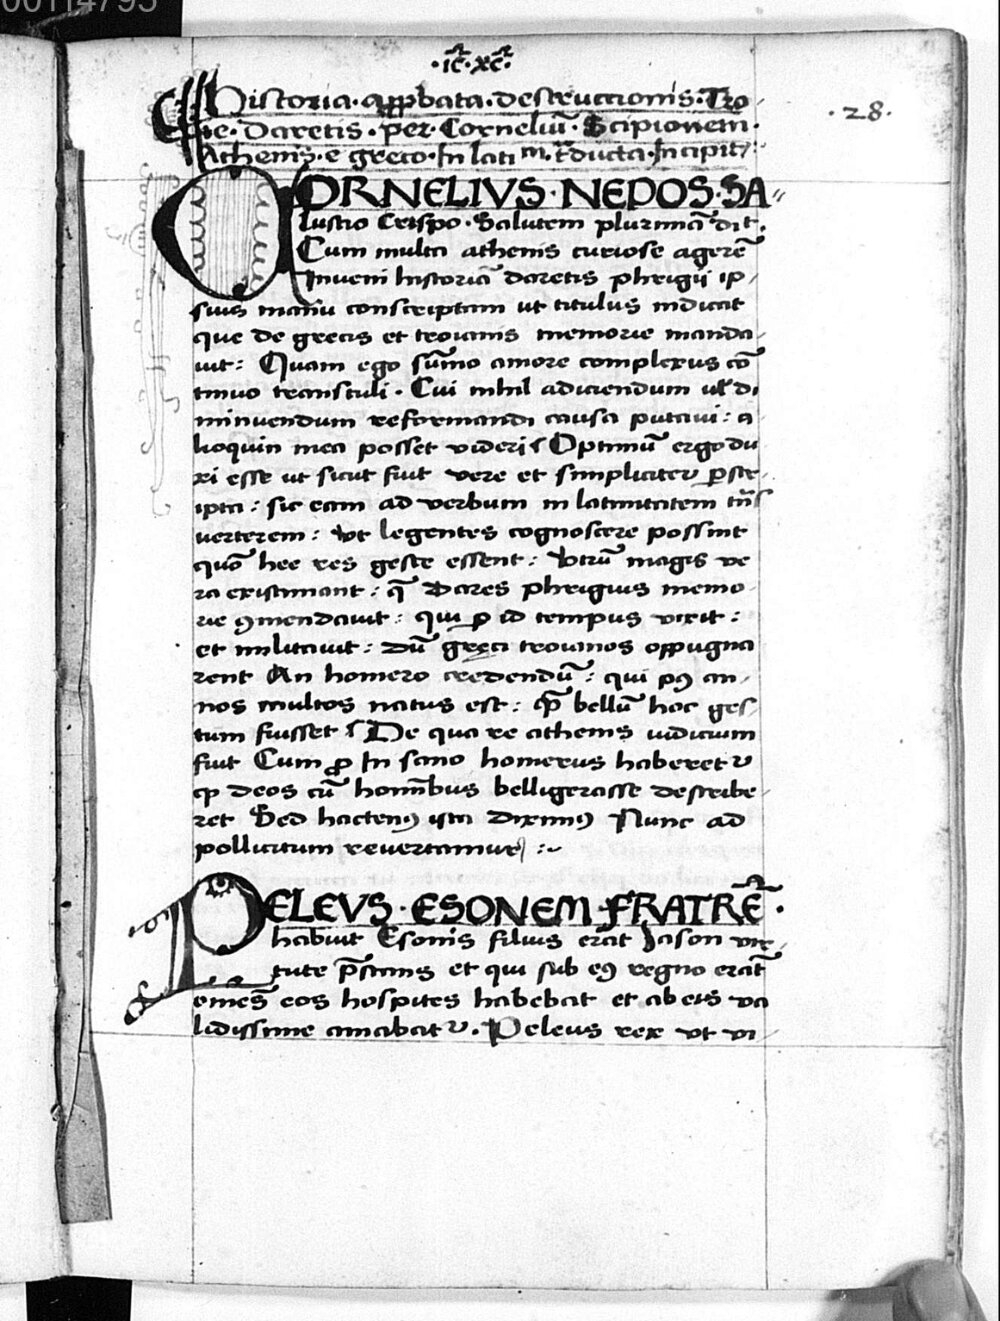 00114795
·ic̄·xc̄·
·28·
Historia·app̱bata·destruccionis·Tro
ie·Daretis·per·Corneliū·Scipionem·
Athenis·e greco·In latinᵐ·t̄ducta·Incipit
CORNELIVS·NEPOS·SA
lustio Crispo·Salutem plurimā dit.
Cum multa athenis curiose agerē
Inveni historiā daretis phrigii ip
sius manu conscriptam ut titulus indicat
que de grecis et troianis memorie manda
uit: Quam ego sūmo amore complexus cō
tinuo transtuli· Cui nihil adiciendum ul̄ di
minuendum reformandi causa putaui: a
lioquin mea posset videri Optimū ergo du
xi esse ut sicut fuit vere et simpliciter ꝑscr
ipta: sic eam ad verbum in latinitatem
uerterem: Vt legentes cognoscere possint
quō hee res geste essent: Vtrū magis ve
ra existimant: q̄ Dares phrigius memo
rie ꝯmendauit: qui ꝑ id tempus vixit:
et militauit: Dū greci troianos oppugna
rent An homero credendū: qui pꝰ an
nos multos natus est: q̄ bellū hoc ges
tum fuisset De qua re athenis iudicium
fuit Cum ꝓ In sano homerus haberetur
ꝙ deos cū hominibus belligerasse describe
ret Sed hactenꝰ ista diximꝰ Nunc ad
pollicitum revertamur :~
PELEVS·ESONEM·FRATRĒ·
habuit Esonis filius erat Jason vir
tute p̄stans et qui sub eꝰ regno erāt
omēs eos hospites habebat et ab eis va
lidissime amabatur. Peleus rex vt vi